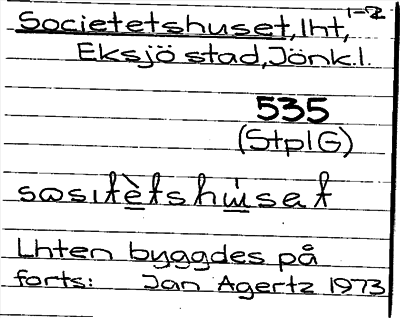 Societetshuset, lht, 1-2
Eksjö stad, Jönk.l.
535
(StplG)
sωsιtètshu̇sat
Lhten byggdes på
forts: Jan Agertz 1973